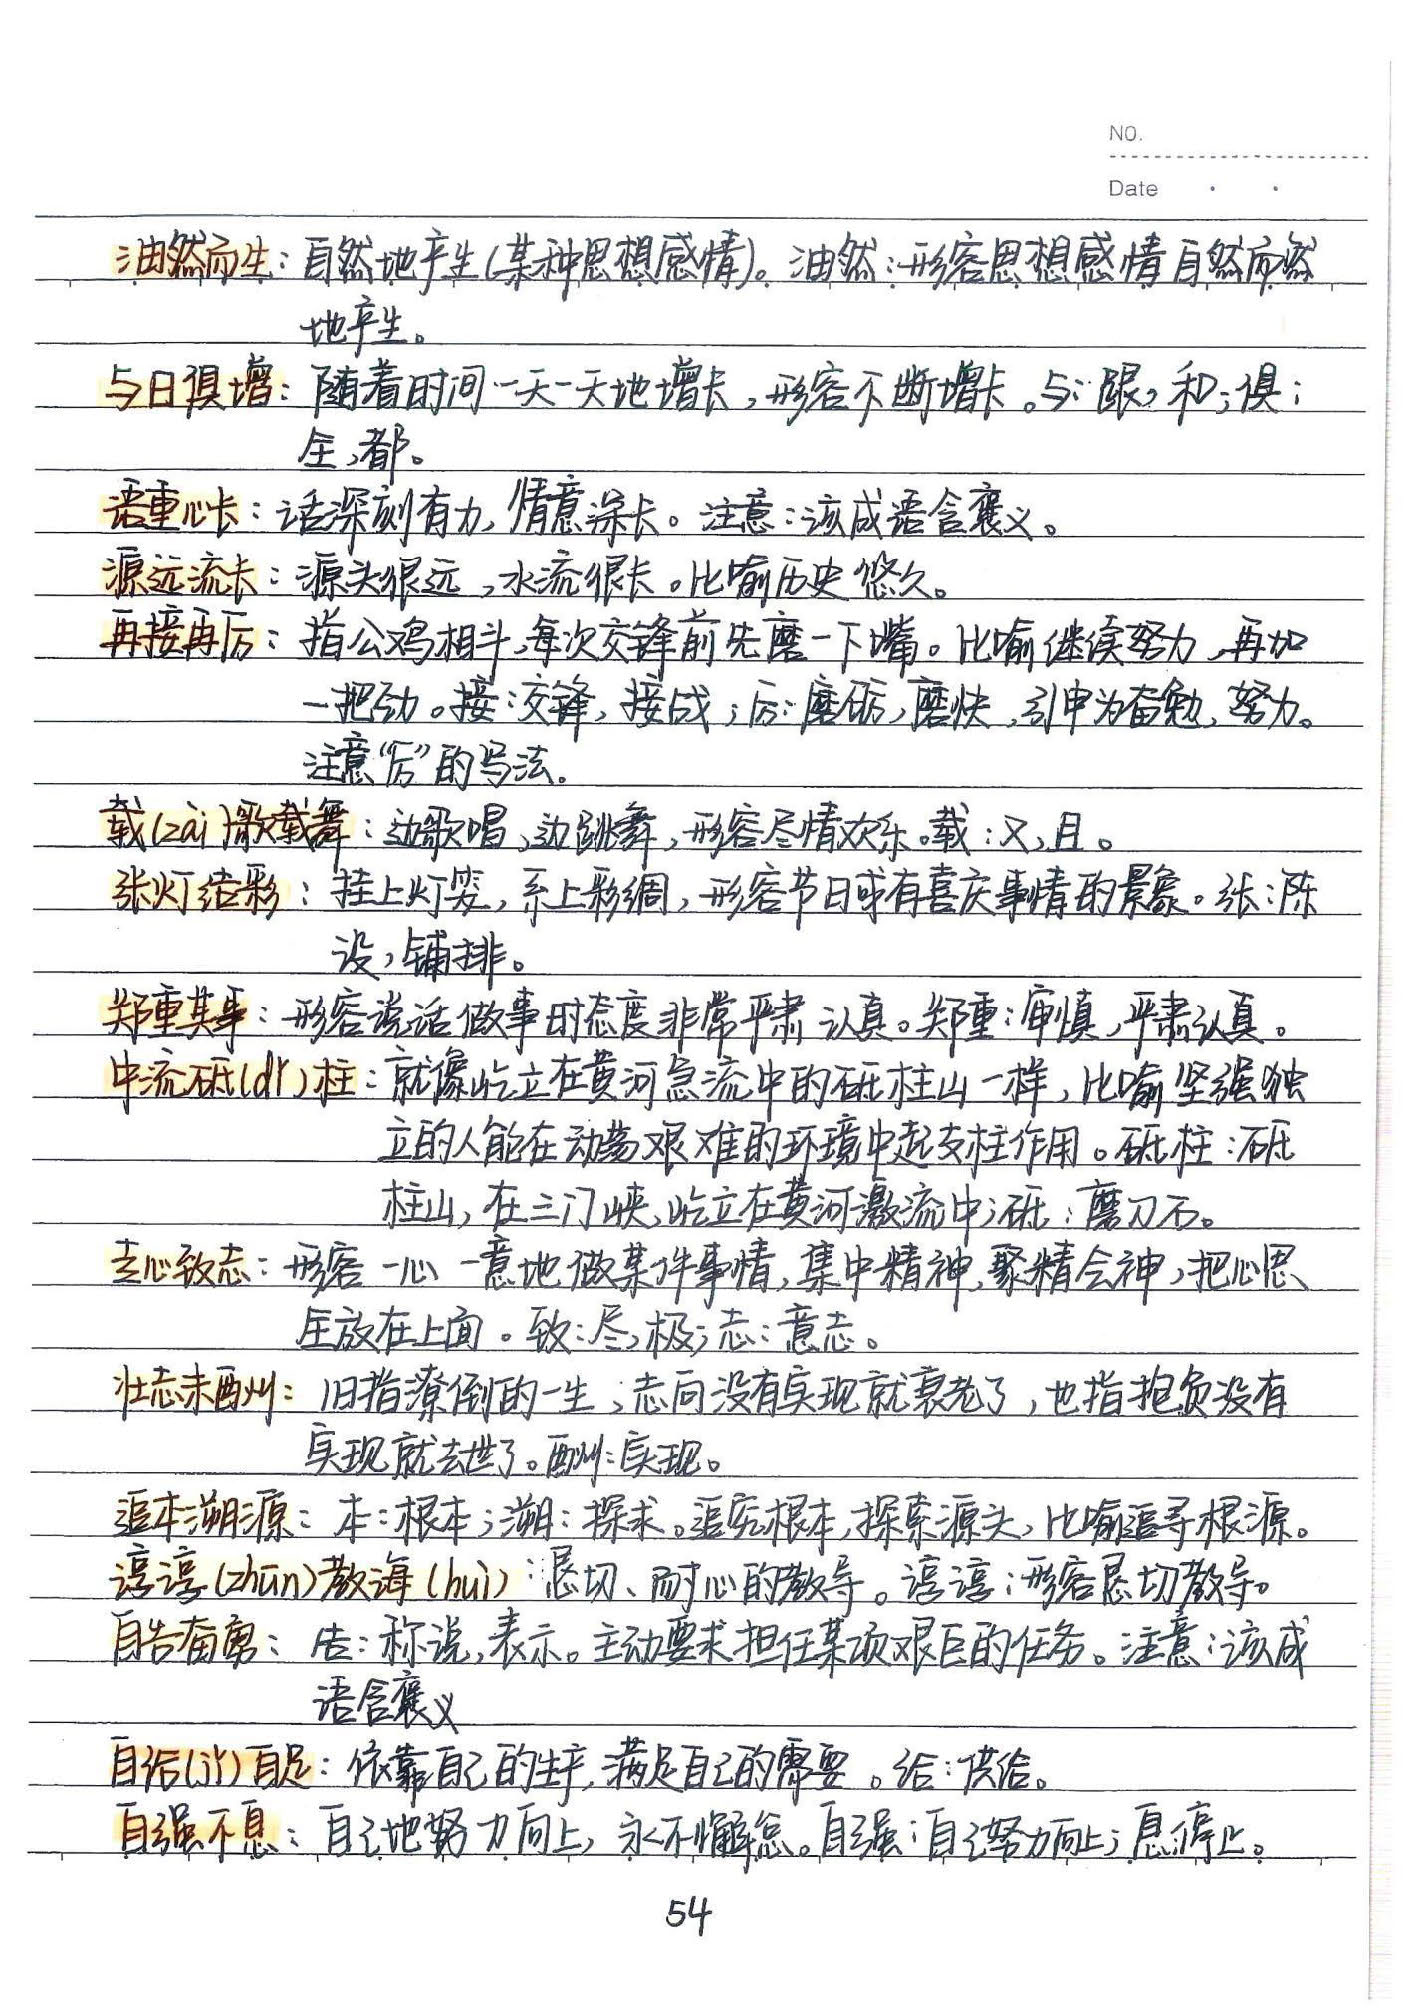 NO.
Date
油然而生：自然地产生(某种思想感情)。油然：形容思想感情自然而然
地产生。
与日俱增：随着时间一天一天地增长，形容不断增长。与：跟，和；俱：
全，都。
语重心长：话深刻有力，情意深长。注意：该成语含褒义。
源远流长：源头很远，水流很长。比喻历史悠久。
再接再厉：指公鸡相斗，每次交锋前先磨一下嘴。比喻继续努力，再加
一把劲。接：交锋，接战；厉：磨砺，磨快，引申为奋勉、努力。
注意“厉”的写法。
载(zài)歌载舞：边歌唱，边跳舞，形容尽情欢乐。载：又，且。
张灯结彩：挂上灯笼，系上彩绸，形容节日或有喜庆事情的景象。张：陈
设，铺排。
郑重其事：形容说话做事时态度非常严肃认真。郑重：审慎，严肃认真。
中流砥(dǐ)柱：就像屹立在黄河急流中的砥柱山一样，比喻坚强独
立的人能在动荡艰难的环境中起支柱作用。砥柱：砥
柱山，在三门峡，屹立在黄河激流中；砥：磨刀石。
专心致志：形容一心一意地做某件事情，集中精神，聚精会神，把心思
全放在上面。致：尽，极；志：意志。
壮志未酬：旧指潦倒的一生，志向没有实现就衰老了，也指抱负没有
实现就去世了。酬：实现。
追本溯源：本：根本；溯：探求。追究根本，探索源头，比喻追寻根源。
谆谆(zhūn)教诲(huì)：恳切、耐心的教导。谆谆：形容恳切教导。
自告奋勇：告：称说，表示。主动要求担任某项艰巨的任务。注意：该成
语含褒义
自给(jǐ)自足：依靠自己的生产，满足自己的需要。给：供给。
自强不息：自己地努力向上，永不懈怠。自强：自己努力向上；息：停止。
54